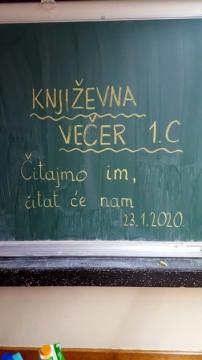 KNJIŽEVNA
VEČER 1.C
Čitajmo im,
čitat će nam
23.1.2020.